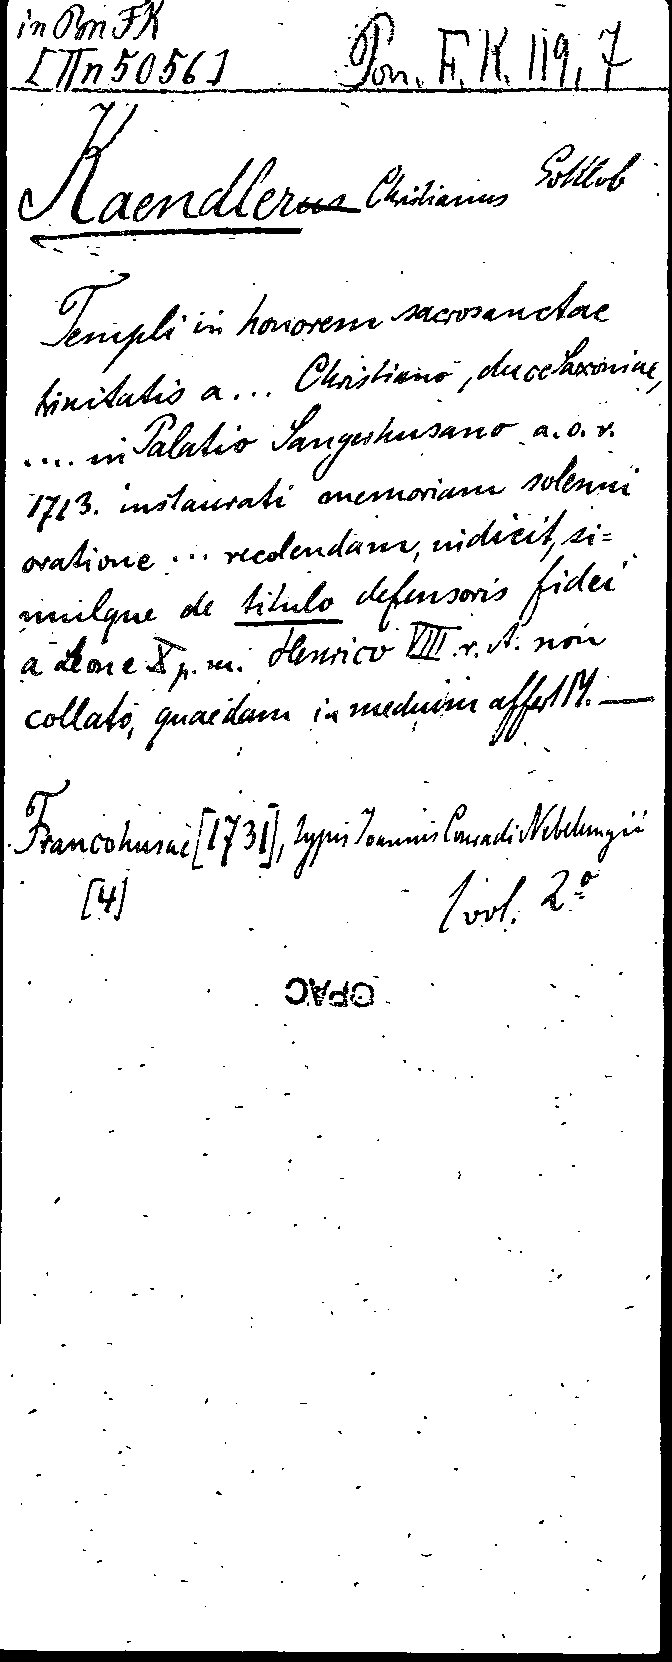 in Pon FK
[IIn 5056] Pon. F. K. 119, 7
Kaendlerus Christianus Gottlob
Templi in honorem sacrosanctae
trinitatis a ... Christiano, duce Saxoniae,
.... in Palatio Sangerhusano a. o. r.
1713. instaurati memoriam solenni
oratione ... recolendam, indicit, si=
mulque de titulo defensoris fidei
a Leone X p. m. Henrico VIII. r. A. non
collato, quaedam in medium affert M. —
Francohusae [1731], typis Joannis Conradi Nebelungii
[4] 1 vol. 2º
OPAC